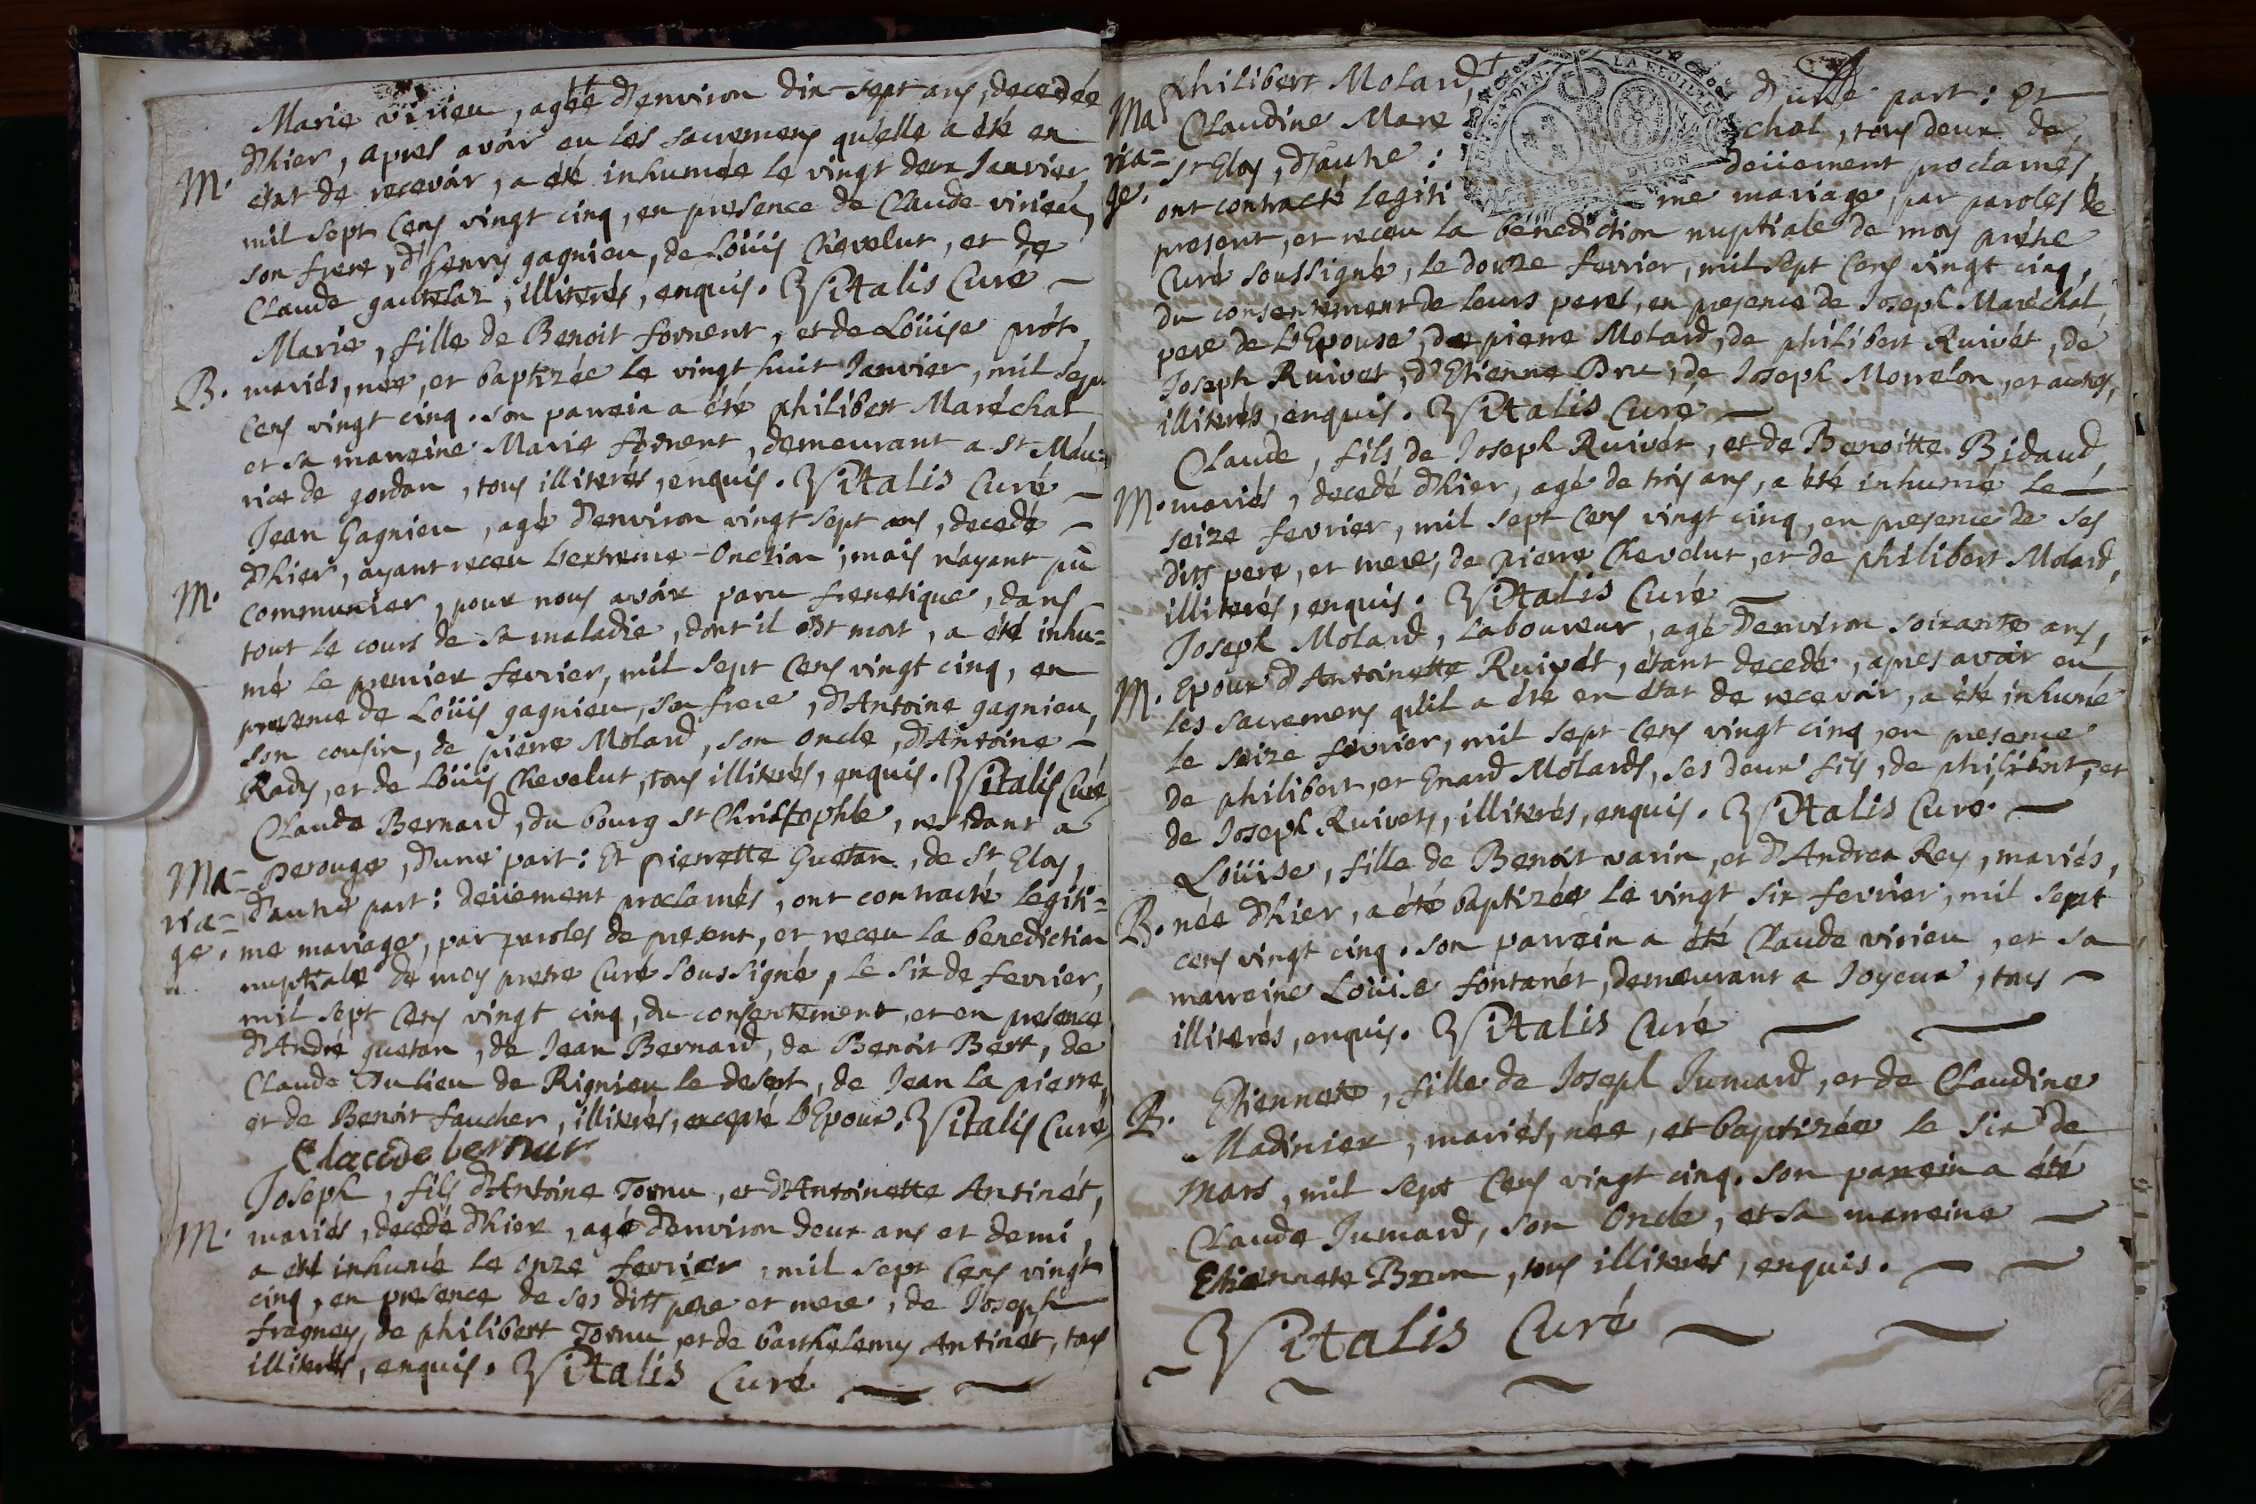 Marie virieu, agée d'environ dix sept ans, decedée
d'hier, apres avoir eu les sacremens qu'elle a été en
M. état de recevoir, a été inhumée le vingt deux Janvier,
mil sept cens vingt cinq, en presence de Claude virieu,
son frere, d'henry gagnieu, de Loüis Chevelut, et de
Claude gautelaz, illiterés, enquis. Vitalis Curé
Marie, fille de Benoit fornent, et de Loüise prót,
B. mariés, née, et baptizée le vingt huit Janvier, mil sept
cens vingt cinq. son parrein a été philibert Maréchal
et sa marreine Marie fornent, demeurant a St Mau=
rice de gordan, tous illiterés, enquis. Vitalis Curé
Jean Gagnieu, agé d'environ vingt sept ans, decedé
d'hier, ayant receu l'extreme-Onction; mais n'ayant pû
M. communier, pour nous avoir paru frenetique, dans
tout le cours de sa maladie, dont il est mort, a été inhu=
mé le premier fevrier, mil sept cens vingt cinq, en
presence de Loüis gagnieu, son frere, d'Antoine gagnieu,
son cousin, de pierre Molard, son oncle, d'Antoine
Rady, et de Loüis Chevelut, tous illiterés, enquis. Vitalis Curé
Claude Bernard, du bourg St Christophle, residant a
Ma= perouge, d'une part: Et pierrette Guetan, de St Eloy,
ria= d'autre part: deüement proclamés, ont contracté legiti=
ge. me mariage, par paroles de present, et receu la benediction
nuptiale de moy pretre Curé soussigné, le six de fevrier,
mil sept cens vingt cinq, du consentement, et en presence
d'André guetan, de Jean Bernard, de Benoit Bert, de
Claude Dulieu de Rignieu le desert, de Jean la pierre,
et de Benoit faucher, illiterés, excepté l'Epoux. Vitalis Curé
Claude bernar
Joseph, fils d'Antoine Tornu, et d'Antoinette Antinét,
M. mariés, decedé d'hier, agé d'environ deux ans et demi,
a été inhumé le onze fevrier, mil sept cens vingt
cinq, en presence de ses dits pere et mere, de Joseph
fregney, de philibert Tornu, et de barthelemy Antinet, tous
illiterés, enquis. Vitalis Curé
philibert Molard, d'une part: Et
Ma Claudine Mare chal, tous deux de
ria= St Eloy, d'autre: deüement proclamés,
ge. ont contracté legiti me mariage, par paroles de
present, et receu la bénediction nuptiale de moy prétre
Curé soussigné, le douze fevrier, mil sept cens vingt cinq,
du consentement de leurs peres, en presence de Joseph Maréchal,
pere de l'Epouse, de pierre Molard, de philibert Ruivét, de
Joseph Ruivet, d'Etienne Bru, de Joseph Morrelon, et autres,
illiterés, enquis. Vitalis Curé
Claude, fils de Joseph Ruivét, et de Benoitte Bidaud,
M. mariés, decedé d'hier, agé de trois ans, a été inhumé le
seize fevrier, mil sept cens vingt cinq, en presence de ses
dits pere, et mere, de pierre Chevelut, et de philibert Molard,
illiterés, enquis. Vitalis Curé
Joseph Molard, Laboureur, agé d'environ soixante ans,
M. Epoux d'Antoinette Ruivét, étant decedé, apres avoir eu
les sacremens qu'il a été en état de recevoir, a été inhumé
le seize fevrier, mil sept cens vingt cinq, en presence
de philibert, et Enard Molards, ses deux fils, de philibert, et
de Joseph Ruivets, illiterés, enquis. Vitalis Curé
Loüise, fille de Benoit varin, et d'Andrea Rey, mariés,
B. née d'hier, a été baptizée le vingt six fevrier, mil sept
cens vingt cinq. son parrein a été Claude virieu, et sa
marreine Loüise fontanét, demeurant a Joyeux, tous
illiterés, enquis. Vitalis Curé
B. Etiennete, fille de Joseph Jumard, et de Claudine
Madinier, mariés, née, et baptizée le six de
mars, mil sept cens vingt cinq. son parrein a été
Claude Jumard, son Oncle, et sa marreine
Etiennete Brun, tous illiterés, enquis.
Vitalis Curé